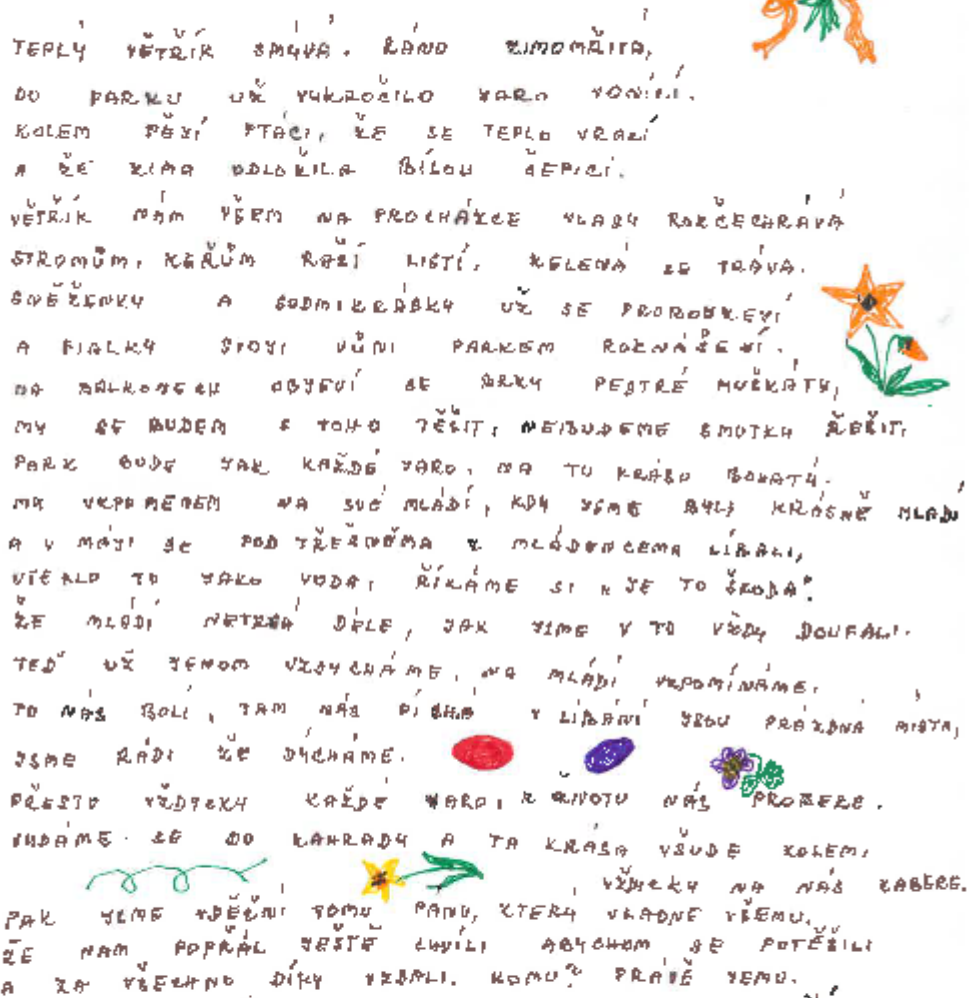 TEPLÝ VĚTŘÍK ZMÝVÁ. RÁNO
DO PARKU UŽ VYKROČILO JARO VONÍCÍ.
KOLEM PĚJÍ PTÁCI, ŽE SE TEPLO VRACÍ
A ŽE ZIMA ODLOŽILA BÍLOU ČEPICI.
VĚTŘÍK NÁM VŠEM NA PROCHÁZCE VLASY ROZČECHRÁVÁ
STROMŮM, KEŘŮM RAŠÍ LISTÍ, ZELENÁ SE TRÁVA.
SNĚŽENKY A SEDMIKRÁSKY UŽ SE
A FIALKY SVOJI VŮNI PARKEM
NA BALKONECH OBJEVÍ SE BRZY PESTRÉ MUŠKÁTY,
MY SE BUDEM Z TOHO TĚŠIT, NEBUDEME SMUTKY ŘEŠIT,
PARK BUDE JAK KAŽDÉ JARO, NA TU KRÁSU BOHATÝ.
MY VZPOMENEM NA SVÉ MLÁDÍ, KDY JSME BYLY KRÁSNĚ MLADÍ
A V MÁJI SE POD TŘEŠNĚMA Z MLÁDENCEMA LÍBALI,
UTEKLO TO JAKO VODA, ŘÍKÁME SI „JE TO ŠKODA“
ŽE MLÁDÍ NETRVÁ DÉLE, JAK JSME V TO VŽDY DOUFALI.
TEĎ UŽ JENOM VZDYCHÁME, NA MLÁDÍ VZPOMÍNÁME.
TO NÁS BOLÍ, TAM NÁS PÍCHÁ V LÍBÁNÍ JSOU PRÁZDNÁ MÍSTA,
JSME RÁDI ŽE DÝCHÁME.
PŘESTO VŽDYCKY KAŽDÉ JARO, K ŽIVOTU NÁS PROBERE.
VYDÁME SE DO ZAHRADY A TA KRÁSA VŠUDE KOLEM,
VŽDYCKY NA NÁS ZABERE.
PAK JSME VDĚČNI TOMU PÁNU, KTERÝ VLADNE VŠEMU,
ŽE NAM POPŘÁL JEŠTĚ CHVÍLI ABYCHOM SE POTĚŠILI
A ZA VŠECHNO DÍKY VZDALI. KOMU? PRÁVĚ JEMU.